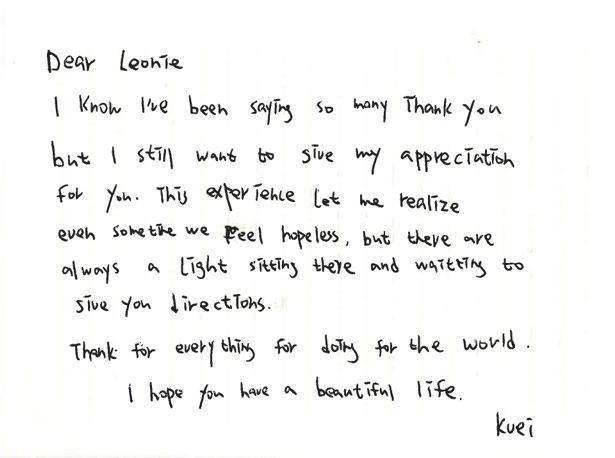 Dear Leonie
I know I've been saying so many Thank you
but I still want to give my appreciation
for you. This experience let me realize
even sometime we feel hopeless, but there are
always a light sitting there and waitting to
give you directions.
Thank for everything for doing for the world.
I hope you have a beautiful life.
Kuei